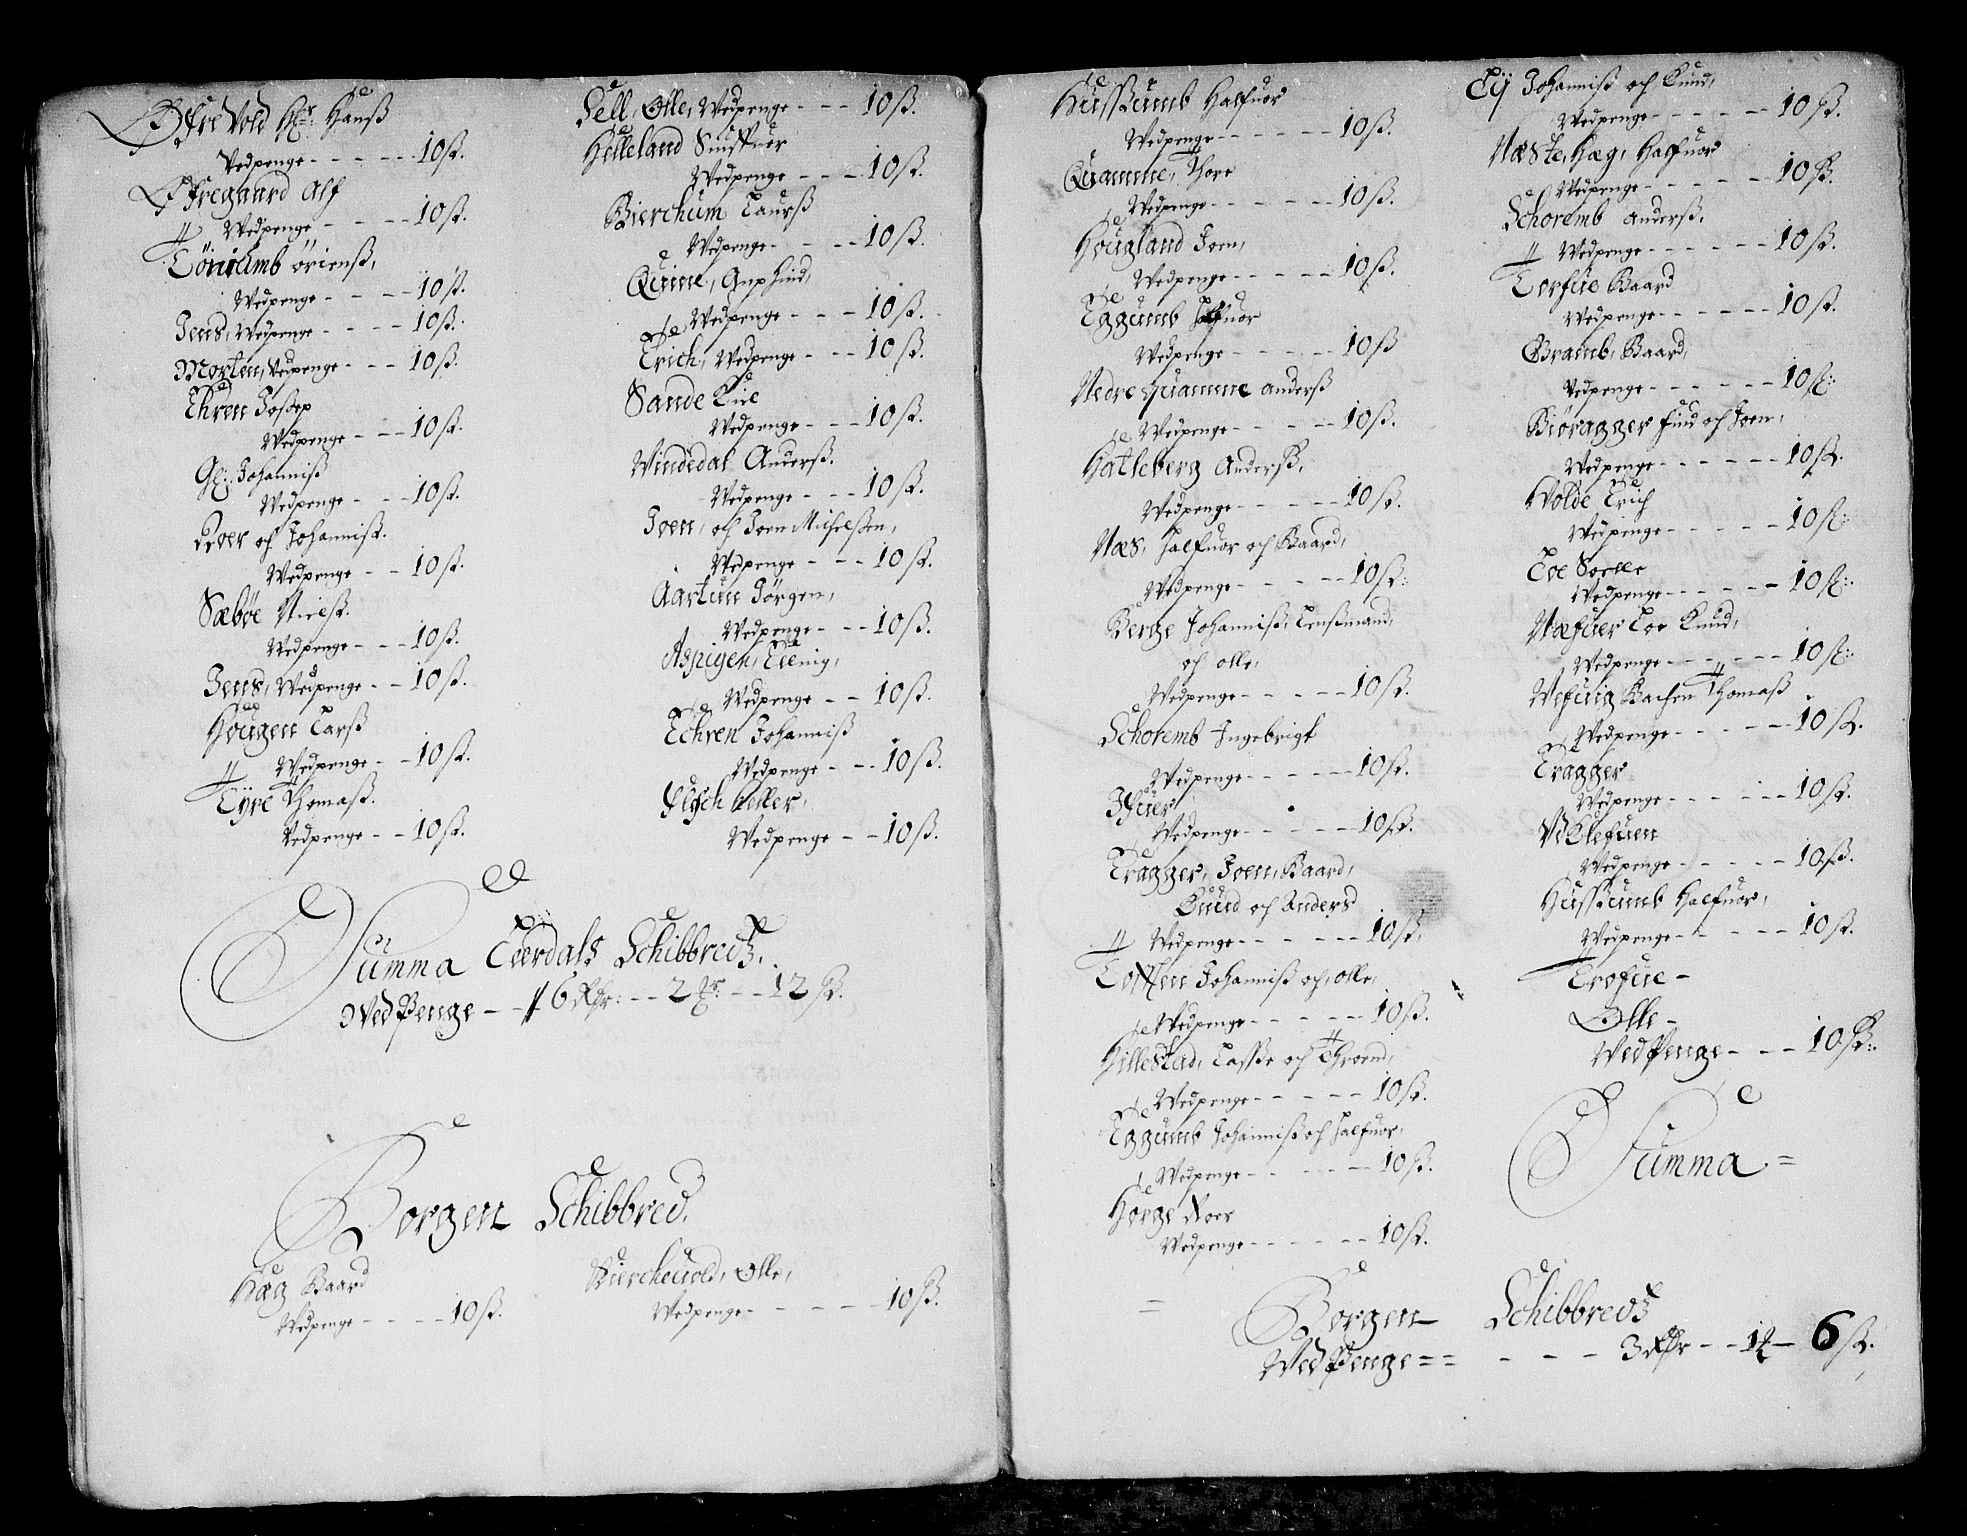 Øfre Vold Hr: Hanß
Vedpenge - - - - - 10 ß.
Øfregaard Alf
Wedpenge - - - - 10 ß.
Lönnumb örienß,
Wedpenge - - - - 10 ß.
Jens, Wedpenge - - - - 10 ß.
Morten, Vedpenge - - - 10 ß.
Ehren Joßep
Wedpenge - - - 10 ß.
Gl: Johanniß
Wedpenge - - - 10 ß.
Iver och Johanniß.
Wedpenge - - 10 ß.
Sæbøe Nielß.
Wedpenge - - 10 ß.
Jens, Wedpenge - - 10 ß.
Hougen Larß
Wedpenge - - 10 ß.
Eyre Thomaß.
Vedpenge - - 10 ß.
Sell, Olle, Wedpenge - - - 10 ß.
Helleland
Wedpenge - - - 10 ß.
Bierchum Laurß
Wedpenge - - - - 10 ß.
Quine,
Wedpenge - - - 10 ß.
Erich, Wedpenge - - - 10 ß.
Sande
Wedpenge - - - 10 ß.
Windedal Anderß.
Wedpenge - - - 10 ß.
Joen, och Joen Michelßen,
Wedpenge - - - 10 ß.
Aartun Jörgen,
Wedpenge - - - 10 ß.
Aspigen,
Wedpenge - - 10 ß.
Echren Johanniß
Wedpenge - - - 10 ß.
Wedpenge - - 10 ß.
Summa Leerdals Schibbredz.
Wed Penge - - 16 dlr: - - 2 - - 12 ß.
Borgen Schibbred.
Hæg Baard
Wedpenge - - - - - 10 ß.
Bierchevold, Olle,
Wedpenge - - - - - 10 ß.
Husskumb Halfuor
Wedpenge - - - - - - 10 ß.
Quamme, Thore
Wedpenge - - - - - - 10 ß.
Hougland Joen,
Wedpenge - - - - - 10 ß.
Eggumb Halfuor
Wedpenge - - - - - 10 ß
Nedre Quamme Anderß
Wedpenge - - - - - 10 ß.
Hatleberg Anderß,
Wedpenge - - - - - 10 ß.
Næs, Halfuor och Baard,
Wedpenge - - - - - 10 ß:
Berge Johanniß, Lenßmand,
och olle,
Wedpenge - - - - - 10 ß.
Schoremb Ingebrigt
Wedpenge - - - - - 10 ß.
Wedpenge - - - - - 10 ß.
Eragger, Joen, Baard,
Knud och Anders
Wedpenge - - - - - - 10 ß.
Johanniß och, olle,
Wedpenge - - - - - - 10 ß.
Hillestad, Lasse och Throend,
Wedpenge - - - - - - 10 ß.
Eggumb Johanniß och Halfuor,
Wedpenge - - - - - - 10 ß.
Horge Roer
Wedpenge - - - - - - 10 ß.
Johanniß och Knud,
Wedpenge - - - - - - 10 ß.
Næste, Hæg, Halfuor
Wedpenge - - - - - - 10 ß.
Schoremb Anderß.
Wedpenge - - - - - - 10 ß.
Torfue Baard
Wedpenge - - - - - - 10 ß.
Bramb, Baard,
Vedpenge - - - - - - 10 ß:
Biøragger find och Joen,
Wedpenge - - - - - - 10 ß.
Holde Erich
Wedpenge - - - - - 10 ß:
Loe Soelle
Wedpenge - - - - - 10 ß:
Næfuer Loe Knud,
Wedpenge - - - - - - 10 ß:
Bachen Thomaß
Wedpenge - - - - - 10 ß.
Eragger
Wedpenge - - - - - - 10 ß.
Wedpenge - - - - - 10 ß.
Husskumb Halfuor,
Wedpenge - - - - - - 10 ß.
Erofue -
Olle -
Wed Penge - - - 10 ß:
Summa =
= Borgen Schibbredz
Wed Penge = = - - - 3 dlr - - 1 - 6 ß.